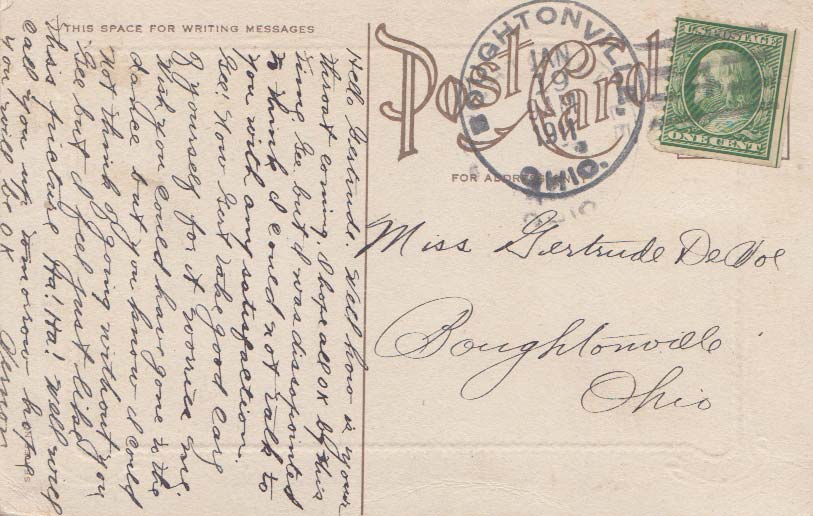 THIS SPACE FOR WRITING MESSAGES
Post Card
FOR ADDRESS ONLY
BOUGHTONVILLE
JAN
9
1911
OHIO.
U.S. POSTAGE
ONE CENT
Hello Gertrude. Well how is your
throat coming. I hope all OK by this
time Gee but I was disappointed
to think I could not talk to
you with any satisfaction.
Gee! Now Gert take good care
of yourself for it worries me.
Wish you could have gone to the
dance but you know I could
not think of going without you
Gee but I feel just like
this picture Ha! Ha! Well will
call you up tomorrow hopes
you will be OK
Vernon
Miss Gertrude DeVoe
Boughtonville
Ohio